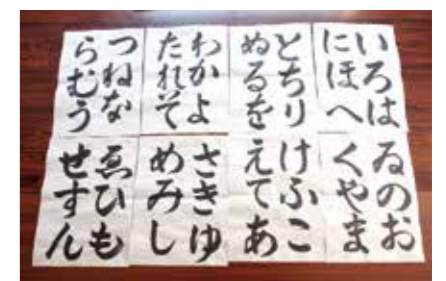 いろは
にほへ
とちり
ぬるを
わかよ
たれそ
つねな
らむう
ゐのお
くやま
けふこ
えてあ
さきゆ
めみし
ゑひも
せすん